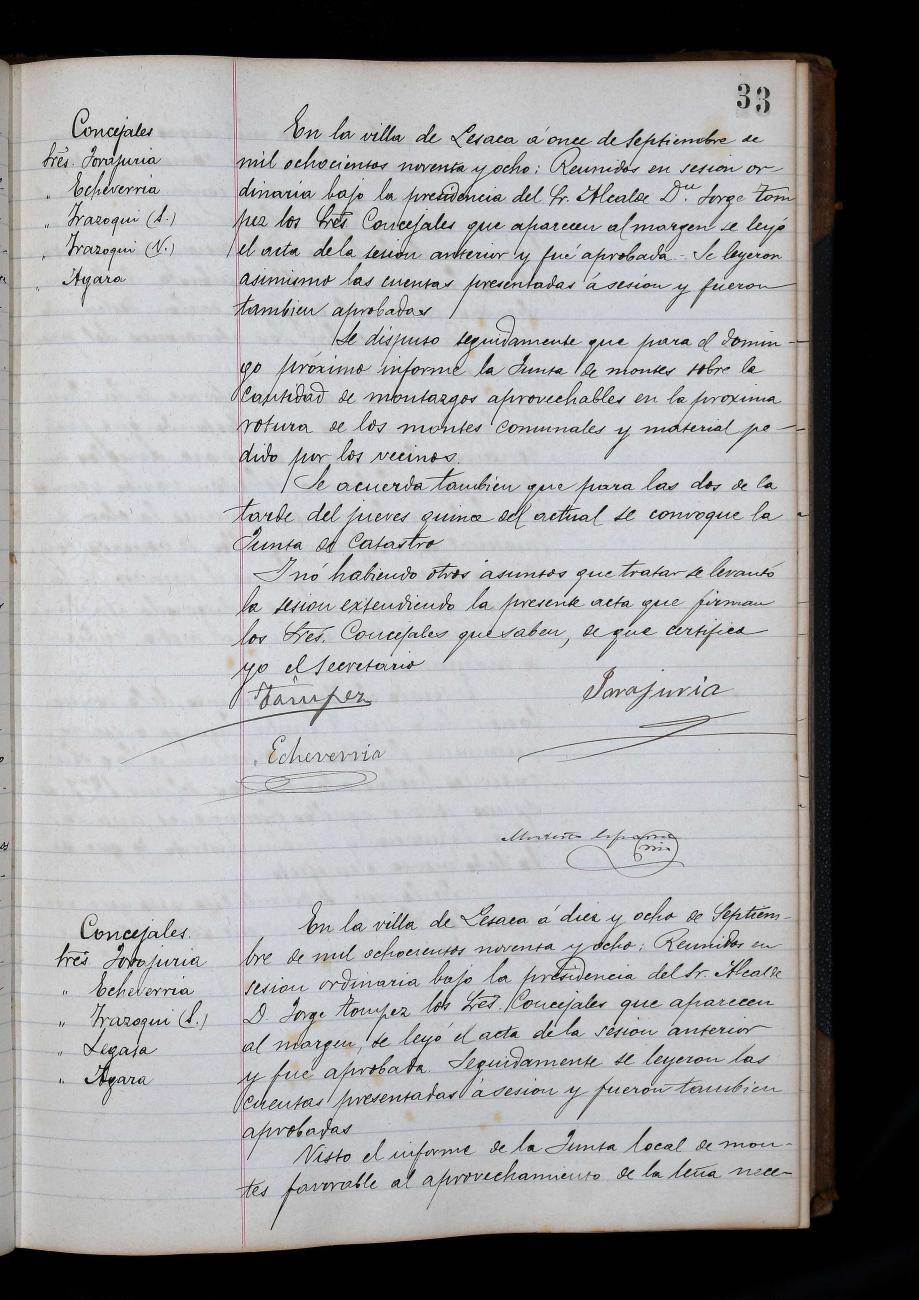 33
Concejales
Sres. Jorajuria
" Echeverria
" Irazoqui (S.)
" Irazoqui (N.)
" Agara
En la villa de Lesaca á once de Septiembre de
mil ochocientos noventa y ocho: Reunidos en sesion or-
dinaria bajo la presidencia del Sr. Alcalde Dn. Jorge Tom
pez los Sres Concejales que aparecen al margen se leyó
el acta de la sesion anterior y fué aprobada - Se leyeron
asimismo las cuentas presentadas á sesion y fueron
tambien aprobadas
Se dispuso seguidamente que para el domin-
go próximo informe la Junta de montes sobre la
cantidad de montazgos aprovechables en la proxima
rotura de los montes comunales y material pe-
dido por los vecinos.
Se acuerda tambien que para las dos de la
tarde del jueves quince del actual se convoque la
Junta de Catastro
I nó habiendo otros asuntos que tratar se levantó
la sesion extendiendo la presente acta que firman
los Sres. Concejales que saben, de que certifico
yo el Secretario
Tompez Jorajuria
Echeverria
Concejales.
Sres Jorajuria
" Echeverria
" Irazoqui (S.)
" Legasa
" Agara
En la villa de Lesaca á diez y ocho de Septiem-
bre de mil ochocientos noventa y ocho: Reunidos en
sesion ordinaria bajo la presidencia del Sr. Alcalde
D. Jorge Tompez los Sres. Concejales que aparecen
al margen, se leyó el acta de la sesion anterior
y fué aprobada. Seguidamente se leyeron las
cuentas presentadas á sesion y fueron tambien
aprobadas
Visto el informe de la Junta local de mon-
tes favorable al aprovechamiento de la leña nece-